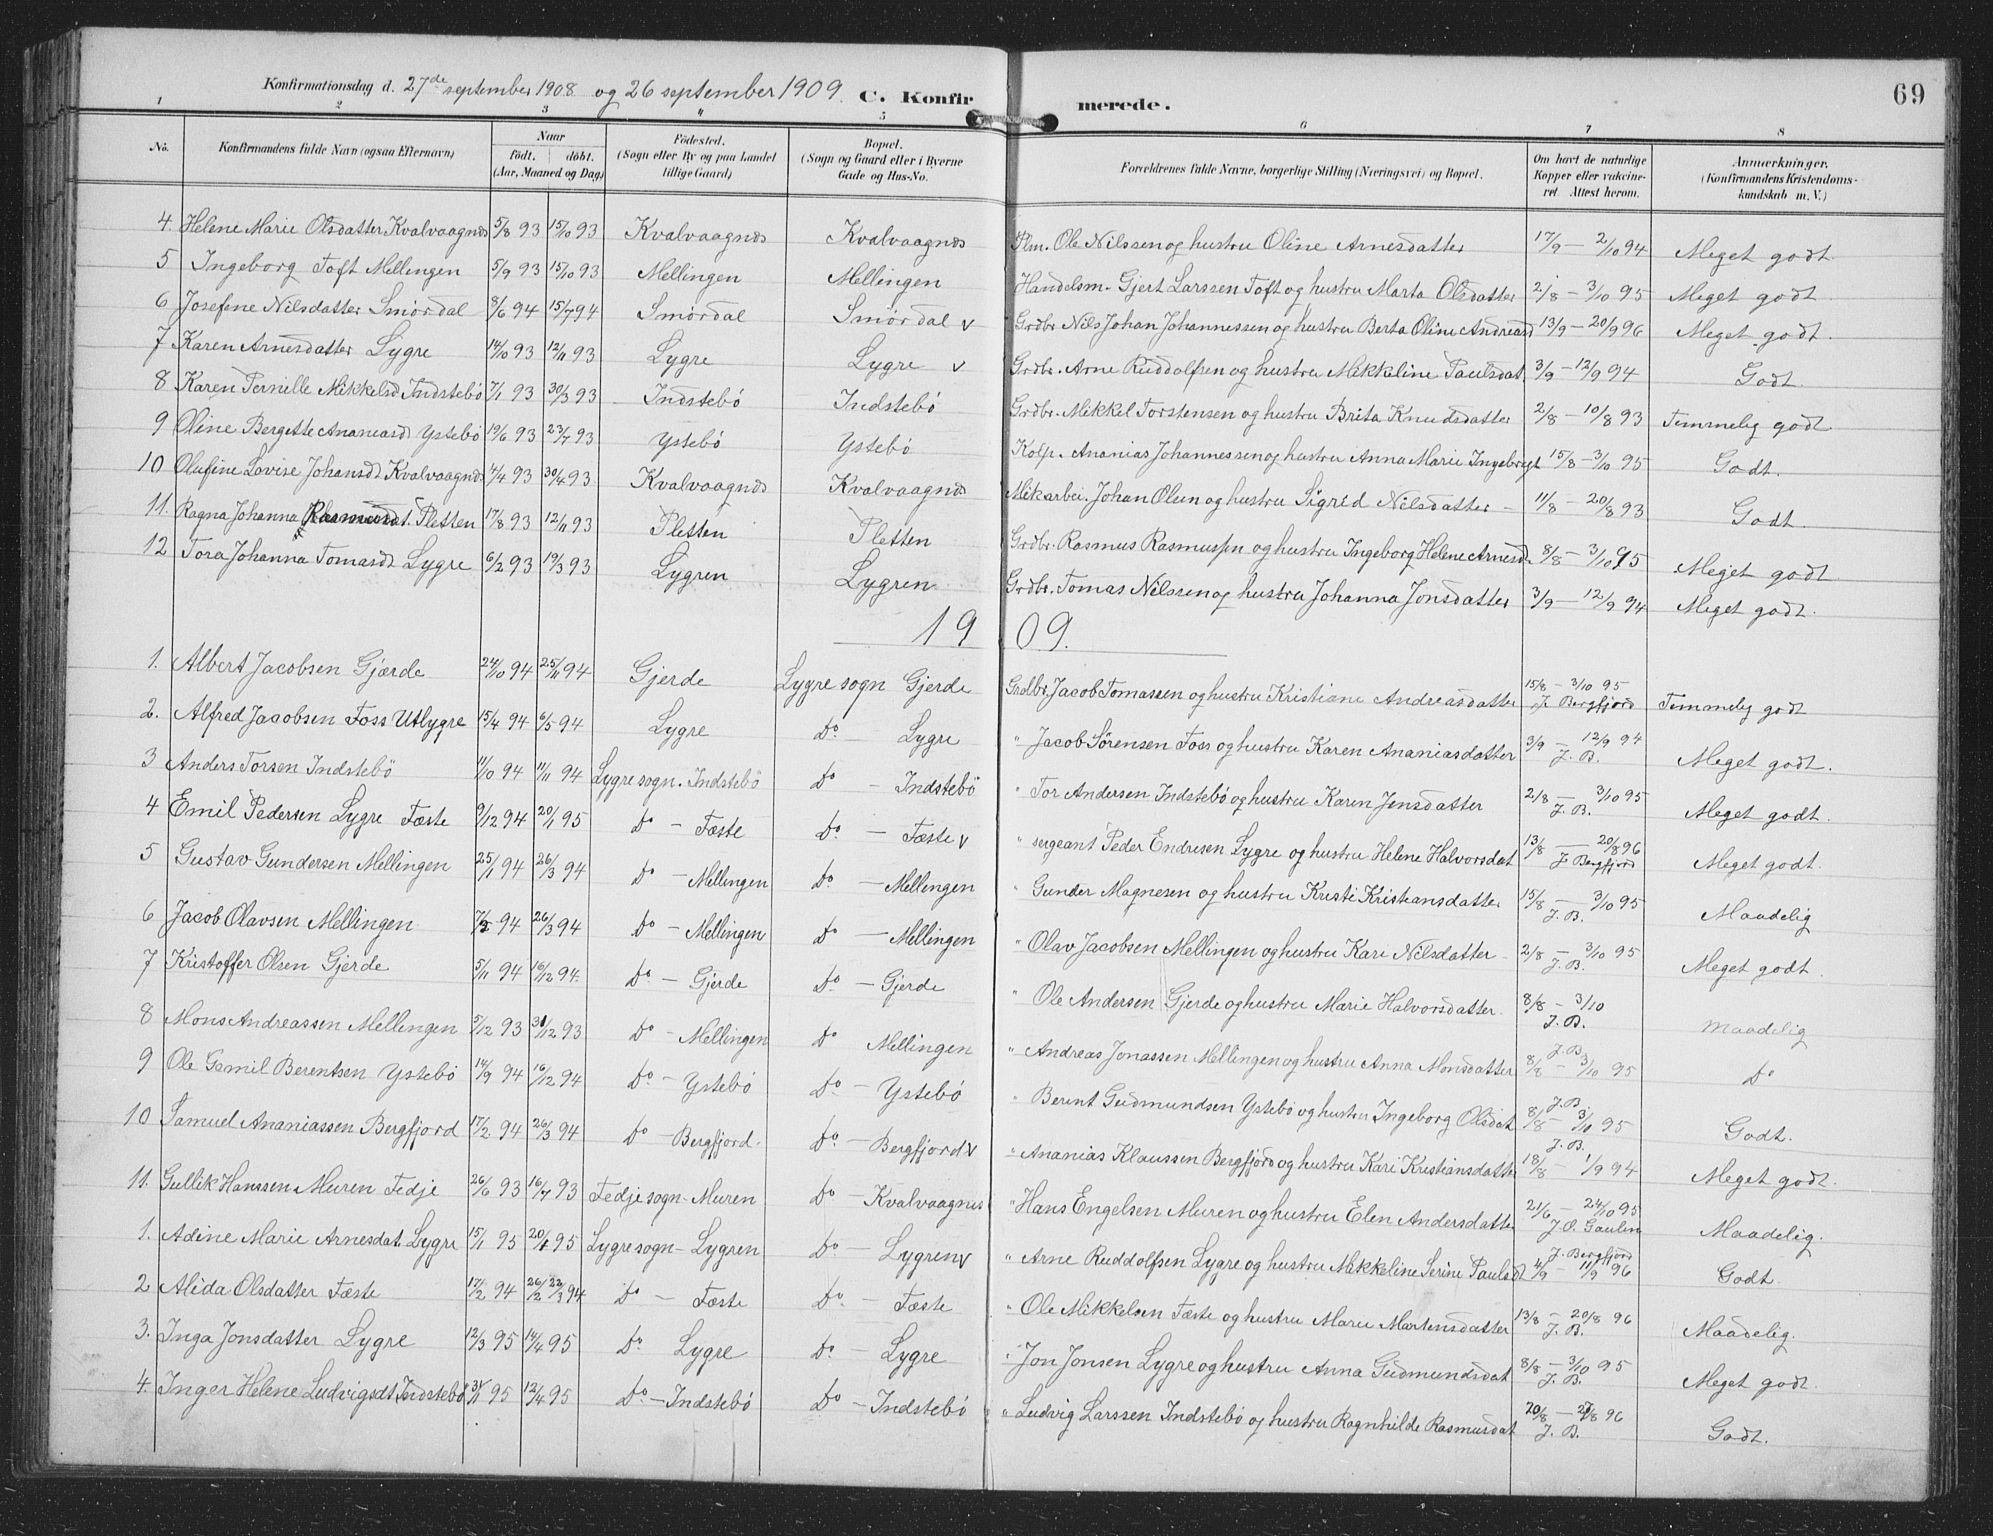 69
Konfirmationsdag d. 27de september 1908 og 26 september 1909. C. Konfirmerede.
1 2 3 4 5 6 7 8
No. Konfirmandens fulde Navn (ogsaa Efternavn) Naar födt. döbt. (Aar, Maaned og Dag) Födested. (Sogn eller By og paa Landet tillige Gaard) Bopæl. (Sogn og Gaard eller i Byerne Gade og Hus-No. Forældrenes fulde Navne, borgerlige Stilling (Næringsvei) og Bopæl. Om havt de naturlige Kopper eller vakcineret Attest herom. Anmærkninger. (Konfirmandens Kristendomskundskab m. V.)
4. Helene Marie Olsdatter Kvalvaagnes 5/8 93 15/10 93 Kvalvaagnes Kvalvaagnes Plm. Ole Nilssen og hustru Oline Arnesdatter 17/9 — 2/10 94 Meget godt.
5 Ingeborg Toft Mellingen 5/9 93 15/10 93 Mellingen Mellingen Handelsm. Gjert Larssen Toft og hustru Marta Olsdatter 2/8 — 3/10 95 Meget godt.
6 Josefine Nilsdatter Smördal 8/6 94 15/7 94 Smördal Smördal v Grdbr. Nils Johan Johannessen og hustru Berta Oline Andreasd 13/9 — 20/9 96 Meget godt.
7 Karen Arnesdatter Lygre 14/10 93 12/11 93 Lygre Lygre v Grdbr. Arne Ruddolfsen og hustru Mikkeline Paulsdat. 3/9 — 12/9 94 Godt.
8 Karen Pernille Mikkelsd. Indstebö 7/1 93 30/3 93 Indstebö Indstebö Grdbr. Mikkel Torstensen og hustru Brita Knudsdatter 2/8 — 10/8 93 Temmelig godt.
9 Oline Bergitte Ananiasd Ystebö 19/6 93 23/7 93 Ystebö Ystebö Kolp. Ananias Johannessen og hustru Anna Marie Ingebrigt 15/8 — 3/10 95 Godt.
10 Olufine Lovise Johansd. Kvalvaagnes 4/4 93 30/4 93 Kvalvaagnes Kvalvaagnes Johan Olsen og hustru Sigrid Nilsdatter — 11/8 — 20/8 93 Godt.
11. Ragna Johanna Rasmusdat. Pletten 17/8 93 12/11 93 Pletten Pletten Grdbr. Rasmus Rasmussen og hustru Ingeborg Helene Arnesd. 8/8 — 3/10 95 Meget godt.
12 Tora Johanna Tomasd. Lygre 6/2 93 19/3 93 Lygren Lygren Grdbr. Tomas Nilssen og hustru Johanna Jonsdatter 3/9 — 12/9 94 Meget godt.
1909.
1. Albert Jacobsen Gjærde 24/10 94 25/11 94 Gjerde Lygre sogn Gjerde Grdbr. Jacob Tomassen og hustru Kristiane Andreasdatter 15/8 — 3/10 95 J. Bergfjord Temmelig godt
2. Alfred Jacobsen Foss Utlygre 15/4 94 6/5 94 Lygre Do — Lygre " Jacob Sörensen Foss og hustru Karen Ananiasdatter 3/9 — 12/9 94 J. B. Meget godt.
3 Anders Torsen Indstebö 11/10 94 11/11 94 Lygre sogn. Indstebö Do — Indstebö " Tor Andersen Indstebö og hustru Karen Jensdatter 2/8 — 3/10 95 J. B. Meget godt.
4 Emil Pedersen Lygre Fæste 9/12 94 20/1 95 Do — Fæste Do — Fæste v " sergeant Peder Endresen Lygre og hustru Helene Halvorsdat 13/8 — 20/8 96 J. Bergfjord Meget godt.
5 Gustav Gundersen Mellingen 25/1 94 26/3 94 Do — Mellingen Do — Mellingen " Gunder Magnesen og hustru Kristi Kristiansdatter 15/8 — 3/10 95 J. B. Maadelig
6 Jacob Olavsen Mellingen 7/2 94 26/3 94 Do — Mellingen Do — Mellingen " Olav Jacobsen Mellingen og hustru Kari Nilsdatter — 2/8 — 3/10 95 J. B. Meget godt.
7 Kristoffer Olsen Gjerde 5/11 94 16/12 94. Do — Gjerde Do — Gjerde " Ole Andersen Gjerde og hustru Marie Halvorsdatter. 8/8 — 3/10 J. B. Maadelig
8 Mons Andreassen Mellingen 5/12 93 31/12 93 Do — Mellingen Do Mellingen " Andreas Jonassen Mellingen og hustru Anna Monsdatter J. B. 8/8 — 3/10 95 Do
9 Ole Gamil Berentsen Ystebö 14/9 94 16/12 94 Do — Ystebö Do — Ystebö " Berent Gudmundsen Ystebö og hustru Ingeborg Olsdat J. B. 8/8 — 3/10 95 J. B. Godt.
10 Samuel Ananiassen Bergfjord 17/2 94 26/3 94 Do — Bergfjord. Do — Bergfjord v " Ananias Klaussen Bergfjord og hustru Kari Kristiansdatter 18/8 — 1/9 94 Meget godt.
11. Gullik Hanssen Muren Fedje 26/6 93 16/7 93 Fedje sogn — Muren Do — Kvalvaagnes " Hans Engelsen Muren og hustru Elen Andersdatter 21/6 — 24/10 95 J. O. Gaulen Maadelig.
1. Adine Marie Arnesdat. Lygre 15/1 95 20/1 95 Lygre sogn — Lygren Do — Lygren v " Arne Ruddolfsen Lygre og hustru Mikkeline Serine Paulsdt J. Bergfjord 4/9 — 11/9 96 Godt.
2 Alida Olsdatter Fæste 17/2 94 26/2 22/3 94 Do — Fæste Do — Fæste " Ole Mikkelsen Fæste og hustru Marie Martensdatter 13/8 — 20/8 96 J. B. Maadelig.
3. Inga Jonsdatter Lygre 12/3 95 14/4 95 Do Lygre Do — Lygre " Jon Jonsen Lygre og hustru Anna Gudmundsdat 8/8 — 3/10 95 J. B. Meget godt.
4. Inger Helene Ludvigsdt. Indstebö 95 12/4 95 Do — Indstebö Do — Indstebö " Ludvig Larssen Indstebö og hustru Ragnhilde Rasmusdat 20/8 — 96 J. B. Godt.